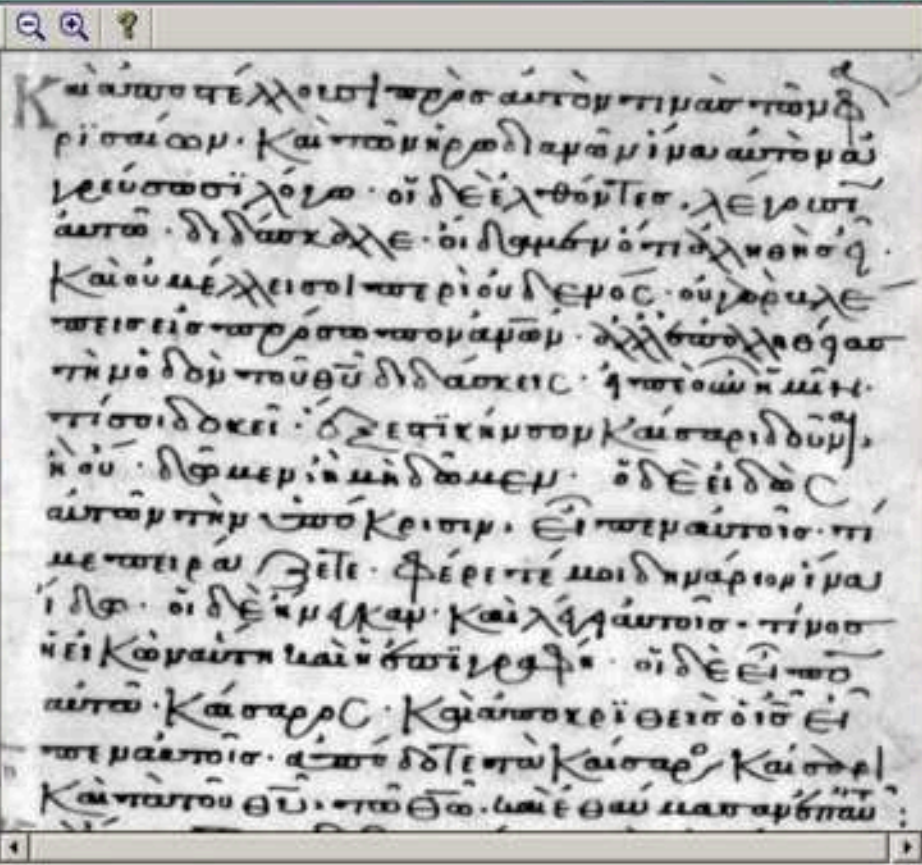 Καὶ ἀποστέλλουσι πρὸς αὐτὸν τινὰς τῶν φα
ρϊσαίων· Καὶ τῶν ἡρωδιανῶν ἵνα αὐτὸν ἀ
γρεύσωσϊ λόγω· οἱ δὲ ἐλθόντες, λέγουσιν
αὐτῶ· διδάσκαλε· οἴδαμεν ὅτι ἀληθὴς εἶ·
Καὶ οὐ μέλλει σοι περὶ οὐδενός· οὐ γὰρ βλέ
πεις εἰς πρόσωπον ἀνῶν· ἀλλ' ἐπ' ἀληθείας
τὴν ὁδὸν τοῦ θῦ διδάσκεις· εἰπὲ οὖν ἡμῖν·
τί σοι δοκεῖ· ἔξεστϊ κῆνσον Καίσαρι δοῦναι,
ἢ οὔ· δῶμεν, ἢ μὴ δῶμεν· ὁ δὲ εἰδὼς
αὐτῶν τὴν ὑπόκρισιν, εἶπεν αὐτοῖς· τί
με πειράζετε· φέρετέ μοι δηνάριον ἵνα
ἴδω· οἱ δὲ ἤνεγκαν· Καὶ λέγει αὐτοῖς· τίνος
ἡ εἰκὼν αὕτη καὶ ἡ ἐπϊγραφή· οἱ δὲ εἶπον
αὐτῶ· Καίσαρος· Καὶ ἀποκρϊθεὶς ὁ ἰς εἶ
πεν αὐτοῖς· ἀπόδοτε τὰ Καίσαρος Καίσαρι
Καὶ τὰ τοῦ θῦ, τῶ θῶ· καὶ ἐθαύμασαν ἐπ' αὐτῶ: